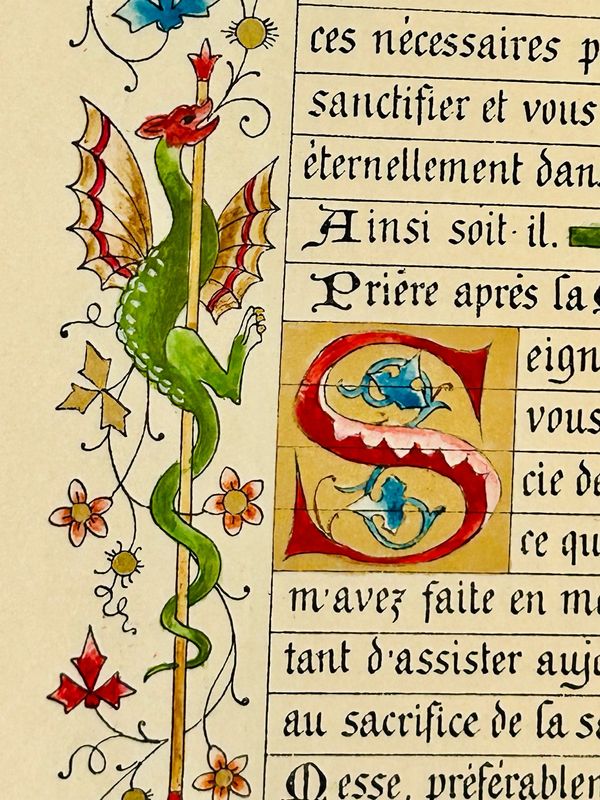 ces nécessaires p
sanctifier et vous
éternellement dan
Ainsi soit-il.
Prière après la
Seign
vous
cie de
ce qu
m'avez faite en m
tant d'assister aujo
au sacrifice de la sa
Messe, préférablem